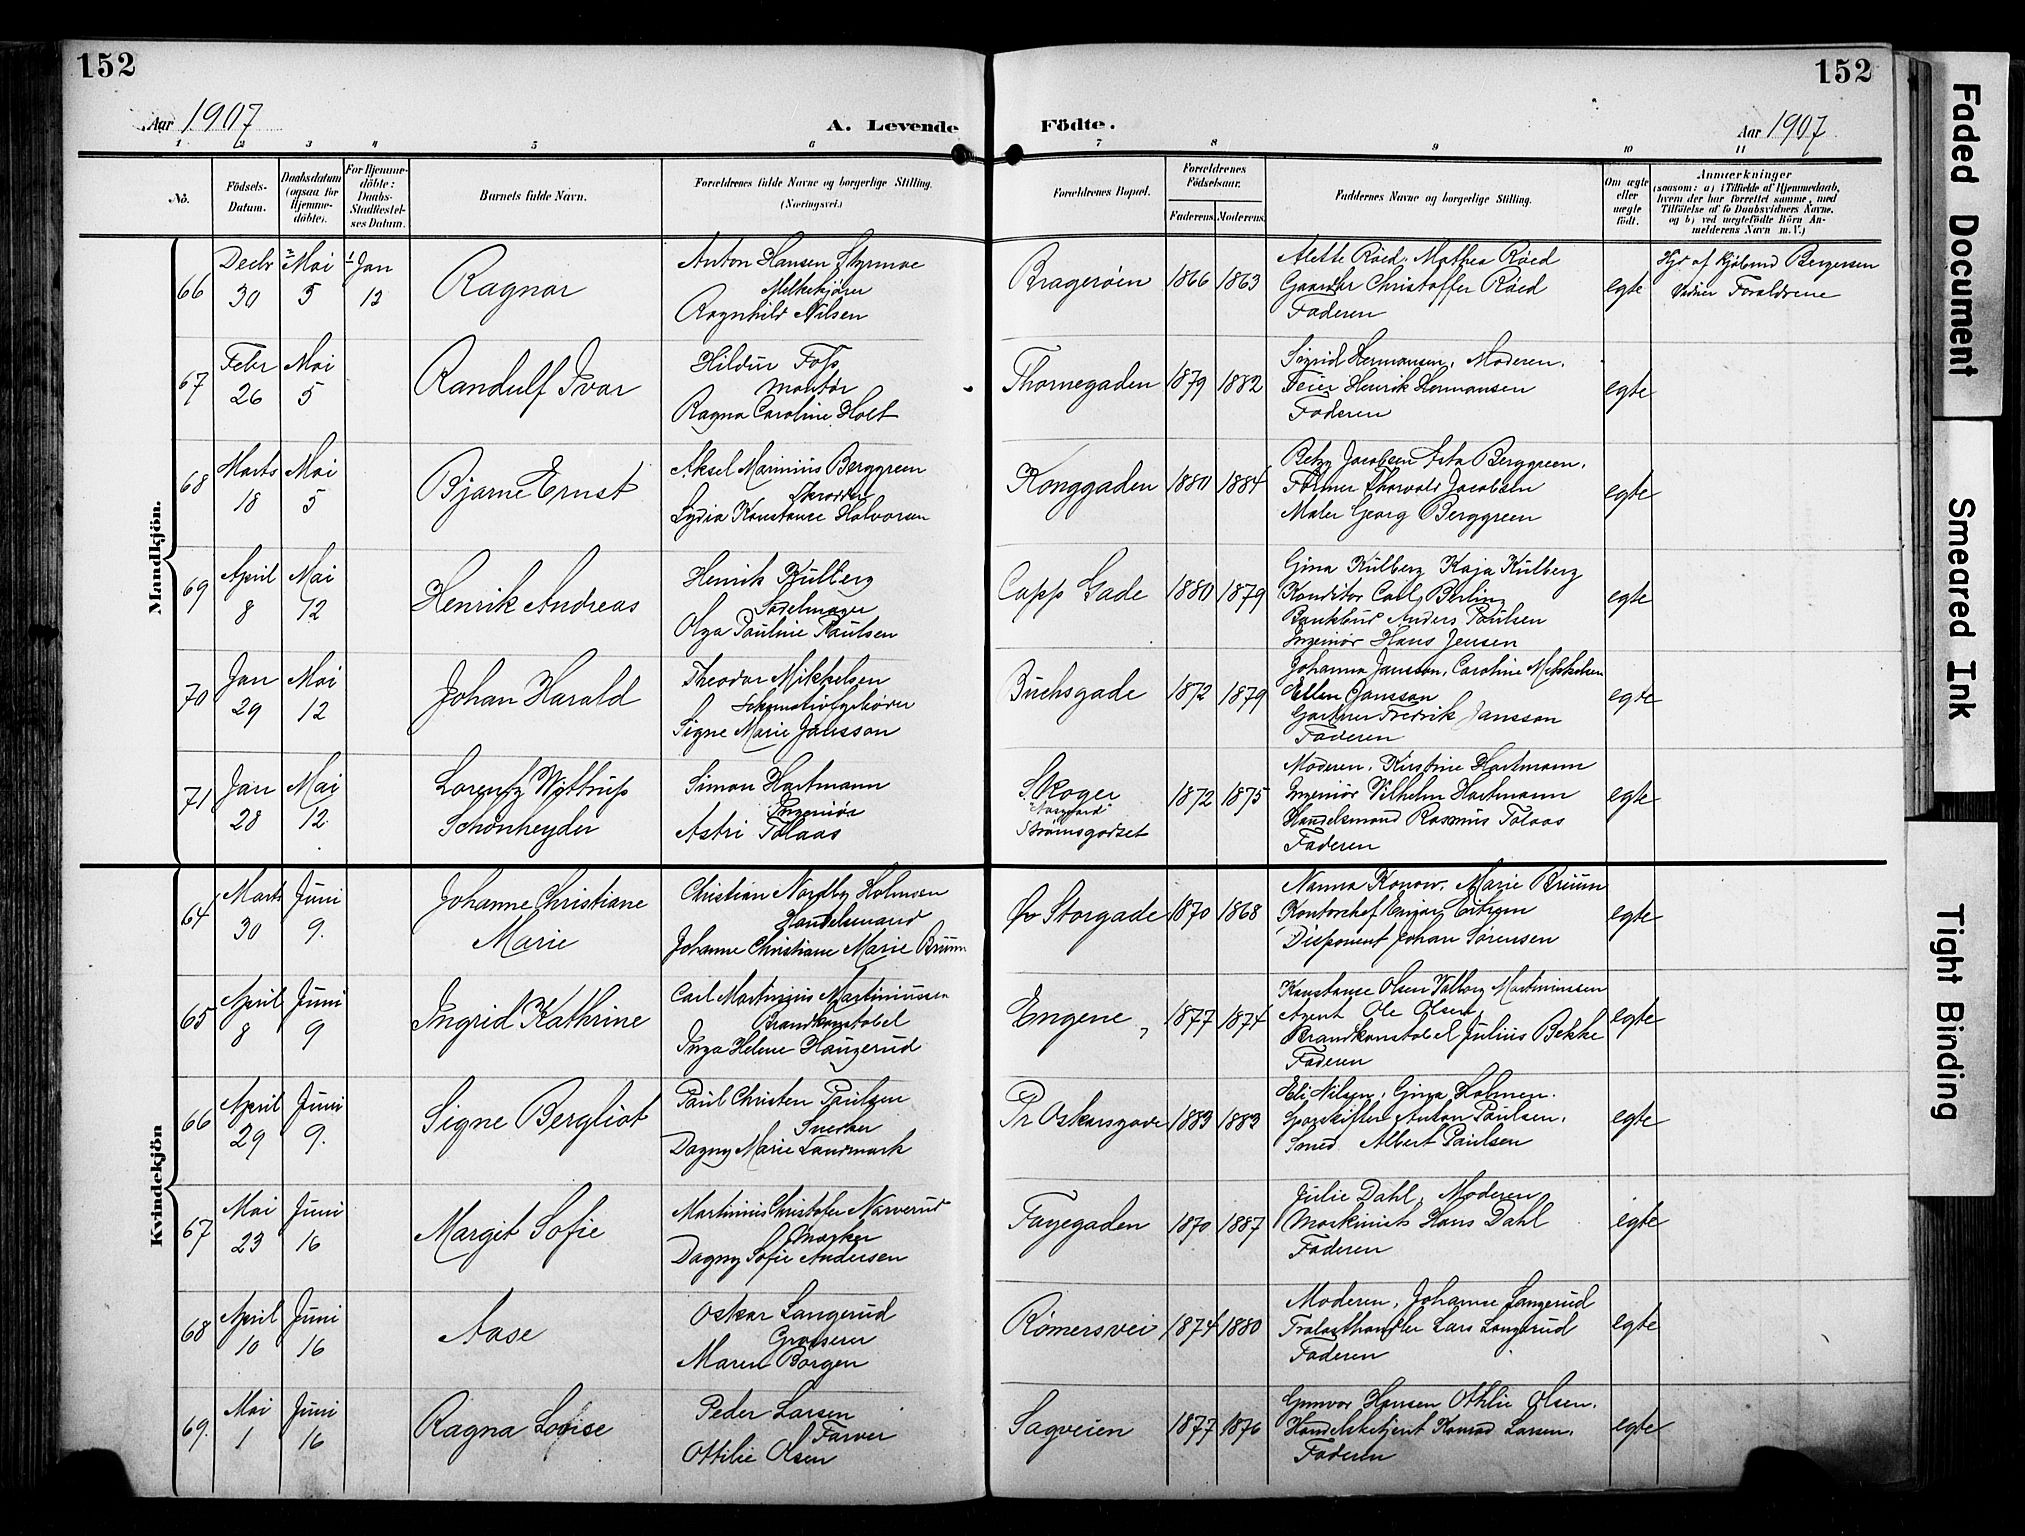 152
152
Aar 1907
A. Levende
Födte.
Aar 1907
1 2 3 4 5 6 7 8 9 10 11
No.
Födsels-
Datum.
Daabsdatum
(ogsaa for
Hjemme-
döbte).
For Hjemme-
döbte:
Daabs-
Stadfæstel-
ses Datum.
Barnets fulde Navn.
Forældrenes fulde Navne og borgerlige Stilling.
(Næringsvei.)
Forældrenes Bopæl.
Forældrenes
Födselsaar.
Faderens.
Moderens.
Faddernes Navne og borgerlige Stilling.
Om ægte
eller
uægte
födt.
Anmærkninger
(saasom: a) i Tilfælde af Hjemmedaab,
hvem der har forrettet samme, med
Tilföielse af to Daabsvidners Navne,
og b) ved uægtefödte Börn An-
melderens Navn m. V.)
Mandkjön.
66
Decbr
30
Mai
5
Jan
13
Ragnar
Anton Hansen Styrmoe
Melkekjører
Ragnhild Nilsen
Bragerøen
1866
1863
Alette Röed. Mathea Röed
Gaardbr Christoffer Röed
Faderen
egte
Hjd af Bergersen
Vidner Forældrene
67
Febr
26
Mai
5
Randulf Ivar
Hildur Foss
Montør
Ragna Caroline Holt
Thornegaden
1879
1882
Sigrid Hermansen, Moderen.
Feier Henrik Hermansen
Faderen
egte
68
Marts
18
Mai
5
Bjarne Ernst
Aksel Marinius Berggreen
Skrædder
Lydia Konstance Halvorsen
Konggaden
1880
1884
Betzy Jacobsen Asta Berggreen.
Former Thorvald Jacobsen
Maler Georg Berggreen
egte
69
April
8
Mai
12
Henrik Andreas
Henrik Kulberg
Sadelmager
Olga Pauline Paulsen
Capp Gade
1880
1879
Gina Kulberg Kaja Kulberg
Konditor Carl Berlin
Bankbud Anders Paulsen
Ingeniør Hans Jensen
egte
70
Jan
29
Mai
12
Johan Harald
Theodor Mikkelsen
Signe Marie Jansson
Buchsgade
1872
1879
Johanna Jansson, Caroline Mikkelsen
Ellen Jansson
Gartner Fredrik Jansson
Faderen
egte
71
Jan
28
Mai
12.
Lorentz Wittrup
Schønheyder
Simon Hartmann
Ingeniør
Astri Tolaas
Skoger
Strømsgodset
1872
1875
Moderen, Kirstine Hartmann
Ingeniør Vilhelm Hartmann
Handelsmand Rasmus Tolaas
Faderen
egte
Kvindekjön
64
Marts
30
Juni
9.
Johanne Christiane
Marie
Christian Nordby Holmsen
Handelsmand
Johanne Christiane Marie Bruun
Øv Storgade
1870
1868
Nanna Konow. Marie Bruun
Kontorchef Einar Eitrem
Disponent Johan Sørensen
egte
65
April
8
Juni
9
Ingrid Kathrine
Carl Martinius Martiniussen
Brandkonstabel
Inga Helene Haugerud
Engene
1877
1874
Konstance Olsen Valborg Martiniussen
Agent Ole Olsen,
Brandkonstabel Julius Bekke
Faderen
egte
66
April
29
Juni
9.
Signe Bergliot
Paul Christen Paulsen
Snedker
Dagny Marie Landmark
Pr Oskarsgade
1883
1883
Eli Nilsen, Gina Holmen.
Sporskifter Anton Paulsen,
Smed Albert Paulsen
egte
67
Mai
23
Juni
16
Margit Sofie
Martinius Christofer Narverud
Dagny Sofie Andersen
Fayegaden
1870
1887
Julie Dahl, Moderen
Maskinist Hans Dahl
Faderen
egte
68
April
10
Juni
16
Aase
Oskar Langerud
Grosserer
Maren Borgen
Rømersvei
1874
1880
Moderen, Johanne Langerud
Trælasthandler Lars Langerud
Faderen
egte
69.
Mai
1
Juni
16
Ragna Lovise
Peder Larsen
Farver
Ottilie Olsen
Sagveien
1877
1876
Gunvor Hansen Othlie Olsen.
Handelsbetjent Konrad Larsen.
Faderen
egte
Faded Document
Smeared Ink
Tight Binding